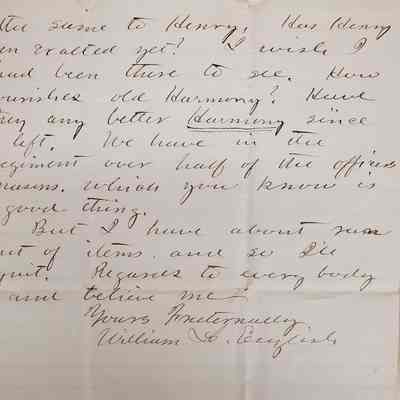 the same to Henry. Has Henry
en exalted yet? I wish I
had been there to see. How
ourishes old Harmony? Have
they any better Harmony since
I left. We have in the
egiment over half of the officers
masons. which you know is
good thing.
But I have about run
out of items and so I'll
quit. Regards to every body
and believe me—
Yours Fraternally
William L. English